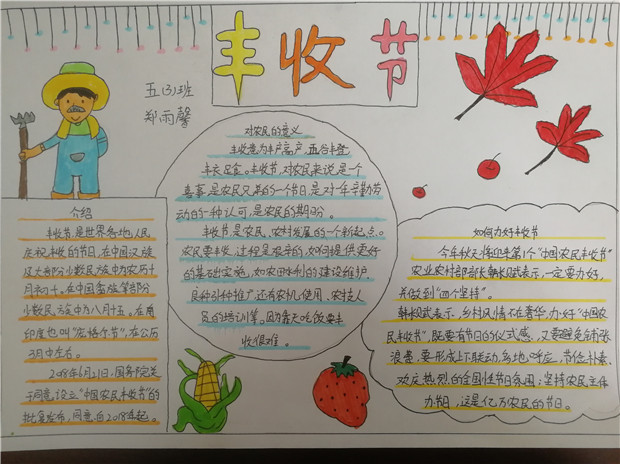 丰收节
五(3)班
郑雨馨
对农民的意义
丰收意为丰产高产,五谷丰登,
丰衣足食。丰收节,对农民来说是一个
喜事,是农民兄弟的一个节日,是对一年辛勤劳
动的一种认可,是农民的期盼。
丰收节是农, 农村发展的一个新起点。
农民要丰收,过程是艰辛的,如何提供更好
的基础实施,如农田水利的建设维护,
良种引种推广还有农机使用、农技人
员的培训等。因为靠天吃饭要丰
收很难。
介绍
丰收节是世界各地人民
庆祝丰收的节日,在中国汉族
及大部分少数民族中为农历十
月初十。在中国畲族等部分
少数民族中为八月十五。在南
印度也叫“庞格尔节”,在公历
3月中左右。
2018年6月21日,国务院关
于同意设立“中国农民丰收节”的
批复发布,同意自2018年起。
如何办好丰收节
今年秋天将迎来第1个“中国农民丰收节”
农业农村部部长韩长赋表示,一定要办好,
并做到“四个坚持”。
韩长赋表示,乡村风情不在奢华,办好“中国农
民丰收节”,既要有节日的仪式感,又要避免铺张
浪费,要形成上下联动、多地呼应,节俭朴素、
欢庆热烈的全国性节日氛围;坚持农民主体
办节日,这是亿万农民的节日。